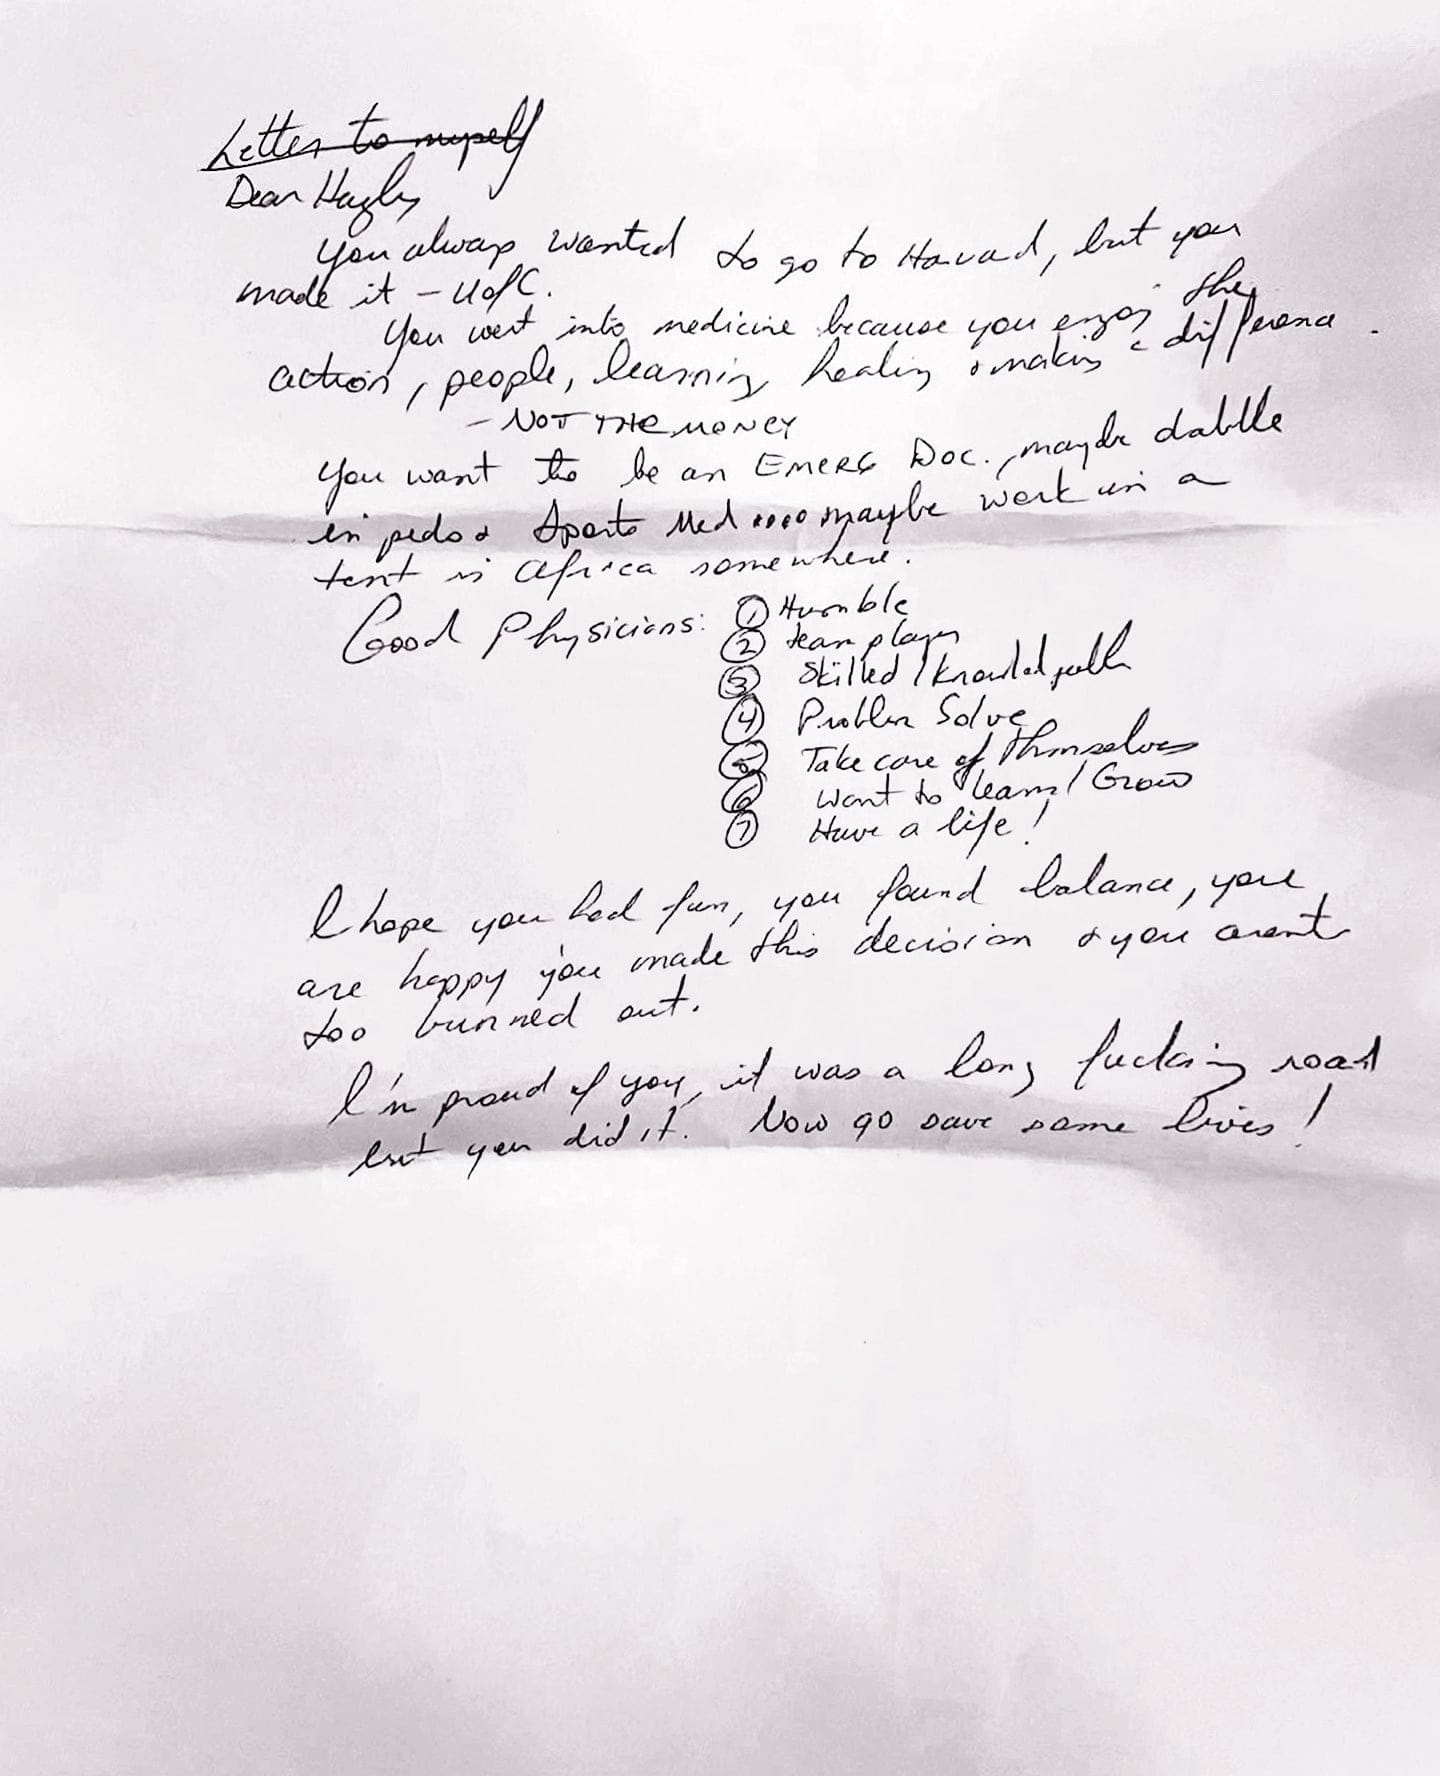 Letter to myself
Dear Hayley
You always wanted to go to Havad, but you
made it - UofC.
You went into medicine because you enjoy the
action, people, learning, healing & making a difference.
- NOT THE MONEY
You want to be an EMERG Doc., maybe dabble
in peds & Sports Med .... maybe work in a
tent in Africa somewhere.
Good Physicians: ① Humble
② team player
③ Skilled / knowledgeable
④ Problem Solve
⑤ Take care of themselves
⑥ Want to learn / Grow
⑦ Have a life!
I hope you had fun, you found balance, you
are happy you made this decision & you arent
too burned out.
I'm proud of you, it was a long fucking road
but you did it. Now go save some lives!